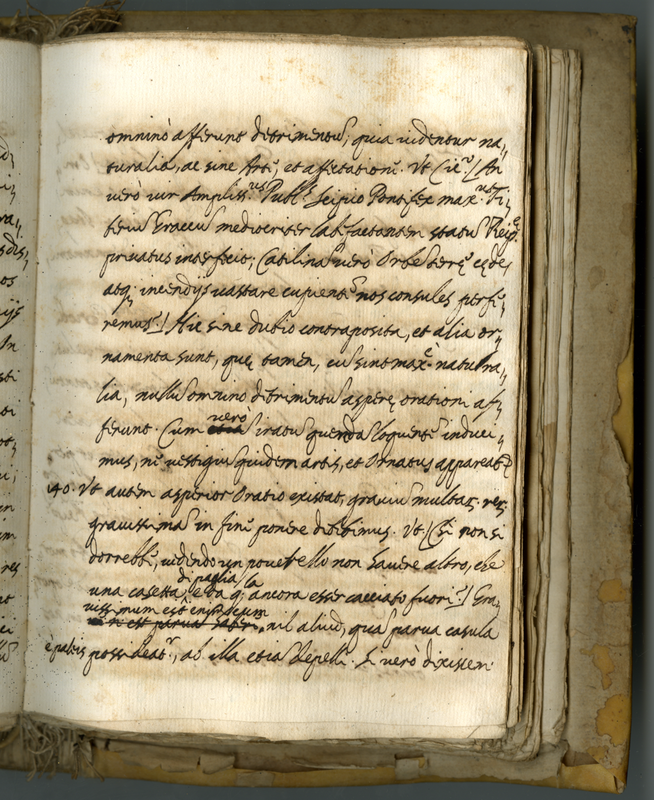 omninò afferunt detrimentũ, quia uidentur na,,
turalia, ac sine Arte, et affetatione. Vt Cic. / An
uerò uir Ampliss.us Publ. Scipio Pontifex max.us Ti,,
beriũ Graccũ mediocriter labefactantem statũ Reip.
priuatus interfecit; Catilinã uerò Orbẽ terrę cęde,
atq; incendijs uastare cupientẽ nos consules perfe,,
remus? / Hic sine dubio contraposita, et alia or,,
namenta sunt, quę tamen, cũ sint max.e natura,,
lia, nullũ omnino detrimentũ asperę orationi af,,
ferunt. Cum uerò iratũ quenda loquentẽ induci,,
mus, nẽ uestigiũ quidem artis, et Ornatus appareat
140. Vt autem asperior Oratio existat, grauiũ multar. rer.
grauissimã in fine ponere debebimus. Vt / Chi non si
dorrebbe, uedendo un pouerello non hauere altro, che
una casetta di paglia, e da q. la ancora esser cacciato fuori? / Gra,,
uissimum est enim, cum
nil aliud, quã parua casula
e paleis possideat, ab illa etiã depelli. Si uerò dixissem